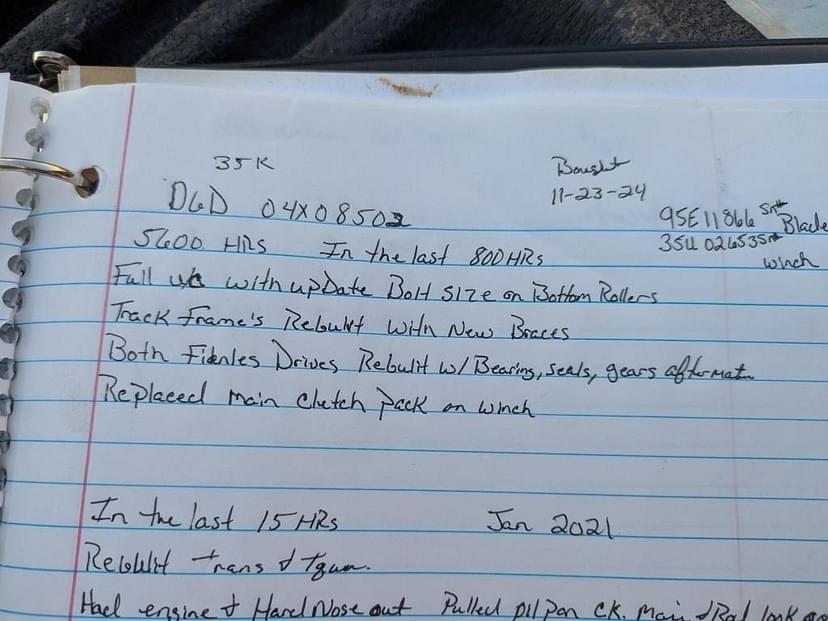 35K
Bought
11-23-24
D6D 04X08503
95E11866 Sn# Blade
5600 HRS In the last 800 HRS
35U02653 Sn# winch
Full uc with upDate Bolt size on Bottom Rollers
Track Frame's Rebuilt with New Braces
Both Fienles Drives Rebuilt w/ Bearing, seals, gears
Replaced main Clutch pack on winch
In the last 15 HRS Jan 2021
Rebuilt trans &
Had engine & Hard Nose out Pulled oil pan CK. main & Rod look